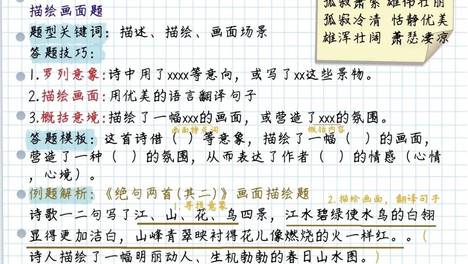 孤寂萧索 雄伟壮丽
孤寂冷清 恬静优美
雄浑壮阔 萧瑟凄凉
描绘画面题
题型关键词：描述、描绘、画面场景
答题技巧：
1.罗列意象：诗中用了xxxx等意向，或写了xx这些景物。
2.描绘画面：用优美的语言翻译句子
3.概括意境：描绘了一幅xxx的画面，或营造了xxx的氛围。
画面特点词 概括内容
答题模板：这首诗借（ ）等意象，描绘了一幅（ ）的画面，
营造了一种（ ）的氛围，从而表达了作者（ ）的情感（心情
，心境）。
例题解析：《绝句两首(其二)》画面描绘题
1.寻找意象 2.描绘画面，翻译句子
诗歌一二句写了江、山、花、鸟四景，江水碧绿使水鸟的白翎
显得更加洁白，山峰青翠映衬得花儿像燃烧的火一样红。。（
诗人描绘了一幅明丽动人、生机勃勃的春日山水图。）